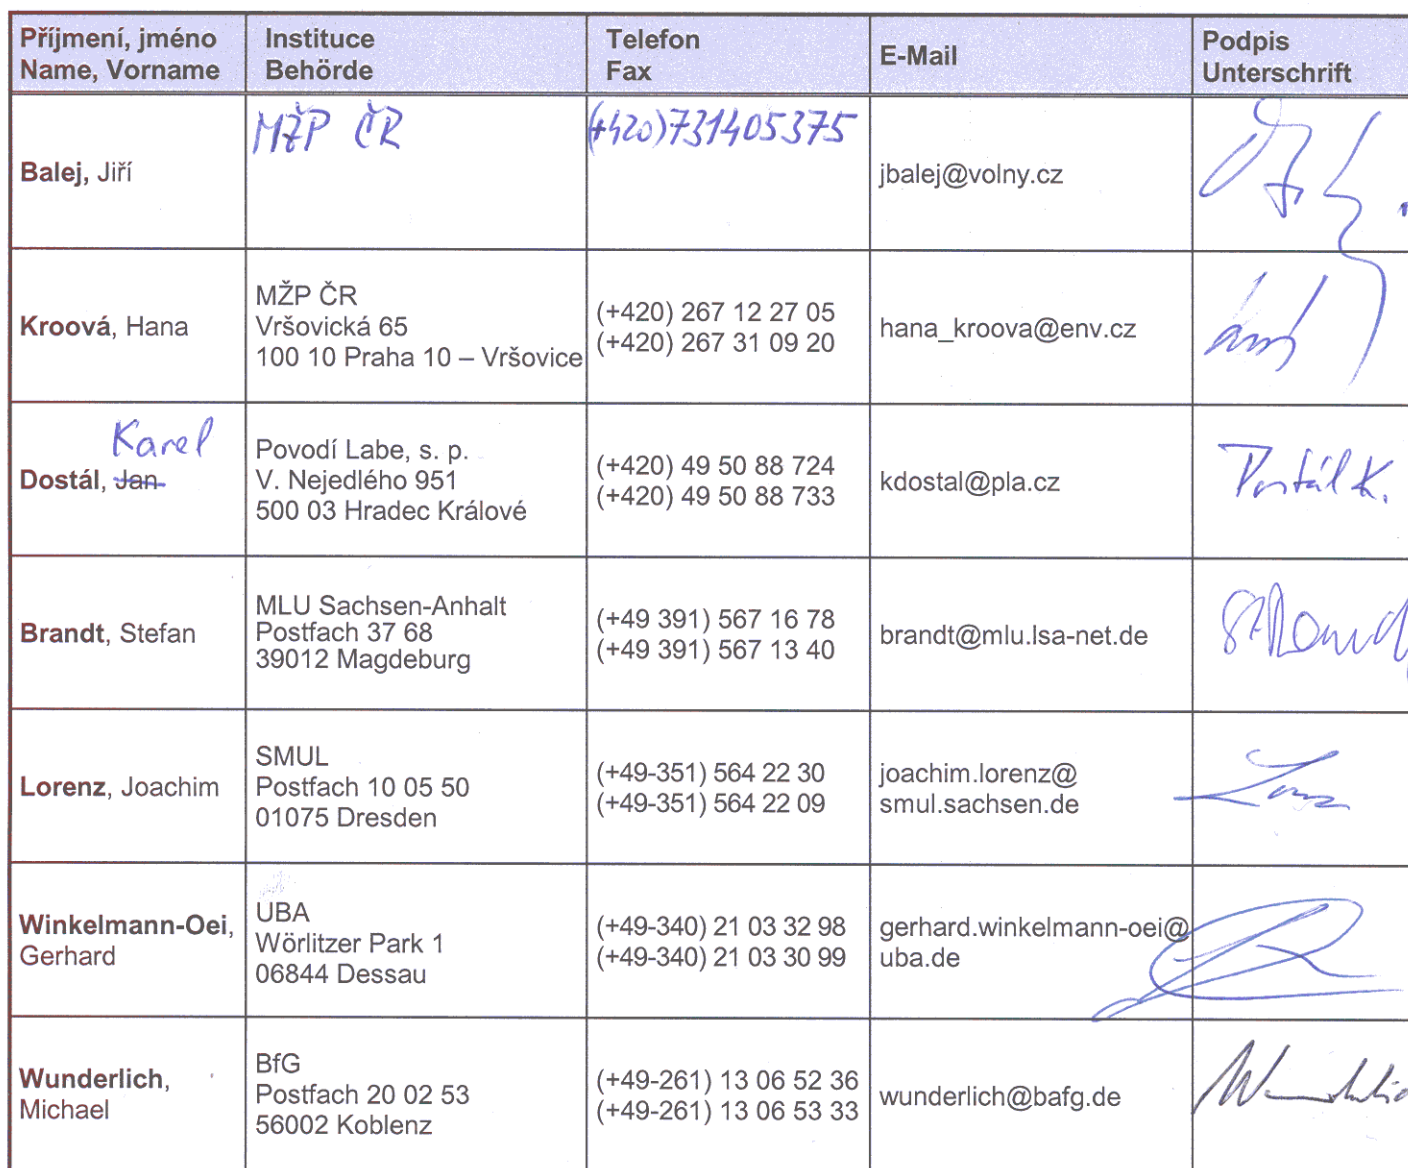 Příjmení, jméno
Name, Vorname
Instituce
Behörde
Telefon
Fax
E-Mail
Podpis
Unterschrift
Balej, Jiří
MŽP ČR
(+420)731405375
jbalej@volny.cz
Kroová, Hana
MŽP ČR
Vršovická 65
100 10 Praha 10 – Vršovice
(+420) 267 12 27 05
(+420) 267 31 09 20
hana_kroova@env.cz
Karel
Dostál, Jan
Povodí Labe, s. p.
V. Nejedlého 951
500 03 Hradec Králové
(+420) 49 50 88 724
(+420) 49 50 88 733
kdostal@pla.cz
Dostál K.
Brandt, Stefan
MLU Sachsen-Anhalt
Postfach 37 68
39012 Magdeburg
(+49 391) 567 16 78
(+49 391) 567 13 40
brandt@mlu.lsa-net.de
Lorenz, Joachim
SMUL
Postfach 10 05 50
01075 Dresden
(+49-351) 564 22 30
(+49-351) 564 22 09
joachim.lorenz@
smul.sachsen.de
Winkelmann-Oei,
Gerhard
UBA
Wörlitzer Park 1
06844 Dessau
(+49-340) 21 03 32 98
(+49-340) 21 03 30 99
gerhard.winkelmann-oei@
uba.de
Wunderlich,
Michael
BfG
Postfach 20 02 53
56002 Koblenz
(+49-261) 13 06 52 36
(+49-261) 13 06 53 33
wunderlich@bafg.de